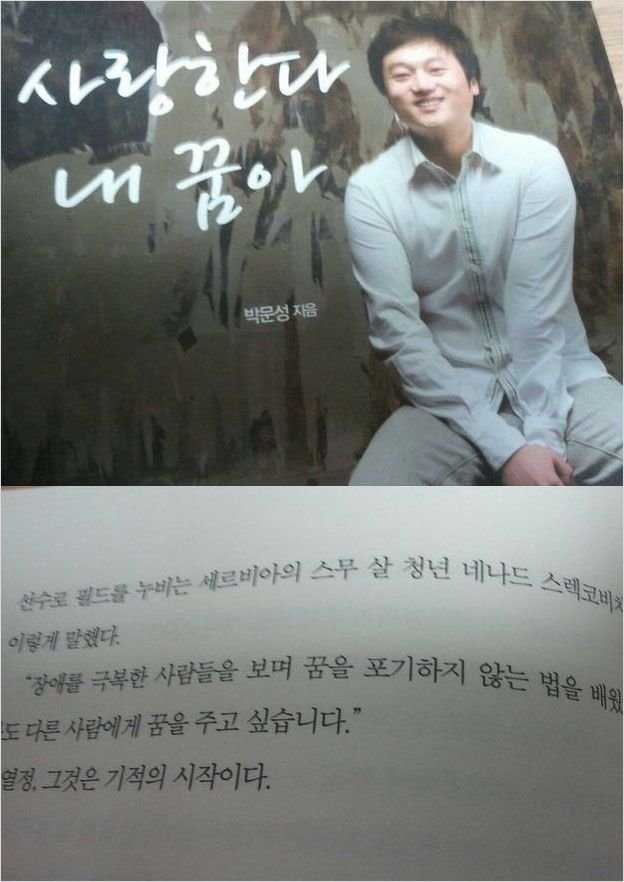 사랑한다
내 꿈아
박문성 지음
선수로 필드를 누비는 세르비아의 스무 살 청년 네나드 스렉코비치
이렇게 말했다.
"장애를 극복한 사람들을 보며 꿈을 포기하지 않는 법을 배웠
도 다른 사람에게 꿈을 주고 싶습니다."
열정, 그것은 기적의 시작이다.